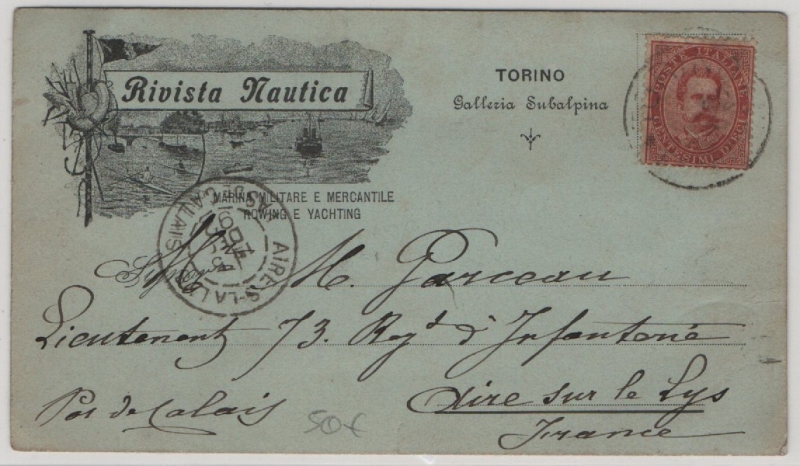 Rivista Nautica
TORINO
Galleria Subalpina
POSTE ITALIANE
CENTESIMI DIECI
MARINA MILITARE E MERCANTILE
ROWING E YACHTING
AIRE-S-LA-LYS
PAS DE CALAIS
Signor
M. Garceau
Lieutenant 73. Regt d'Infanterie
Pas de Calais
Aire sur le Lys
France
50€